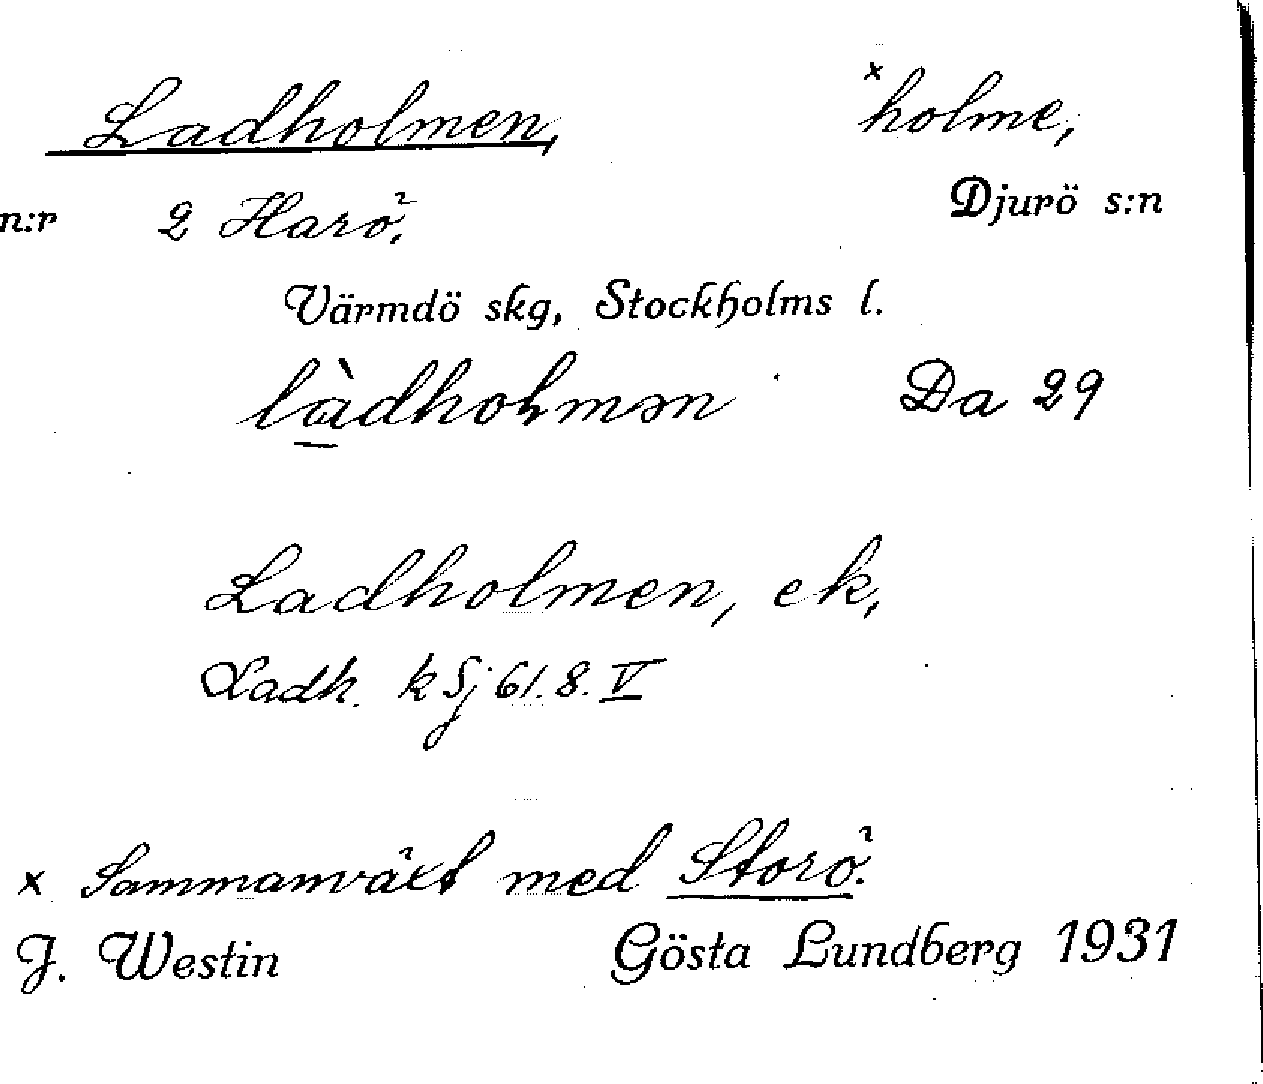 Ladholmen, ˣholme,
n:r 2 Harö, Djurö s:n
Värmdö skg, Stockholms l.
làdhoɫmən Da 29
Ladholmen, ek,
Ladh. k Sj 61. 8. V
x Sammanväxt med Storö.
J. Westin Gösta Lundberg 1931